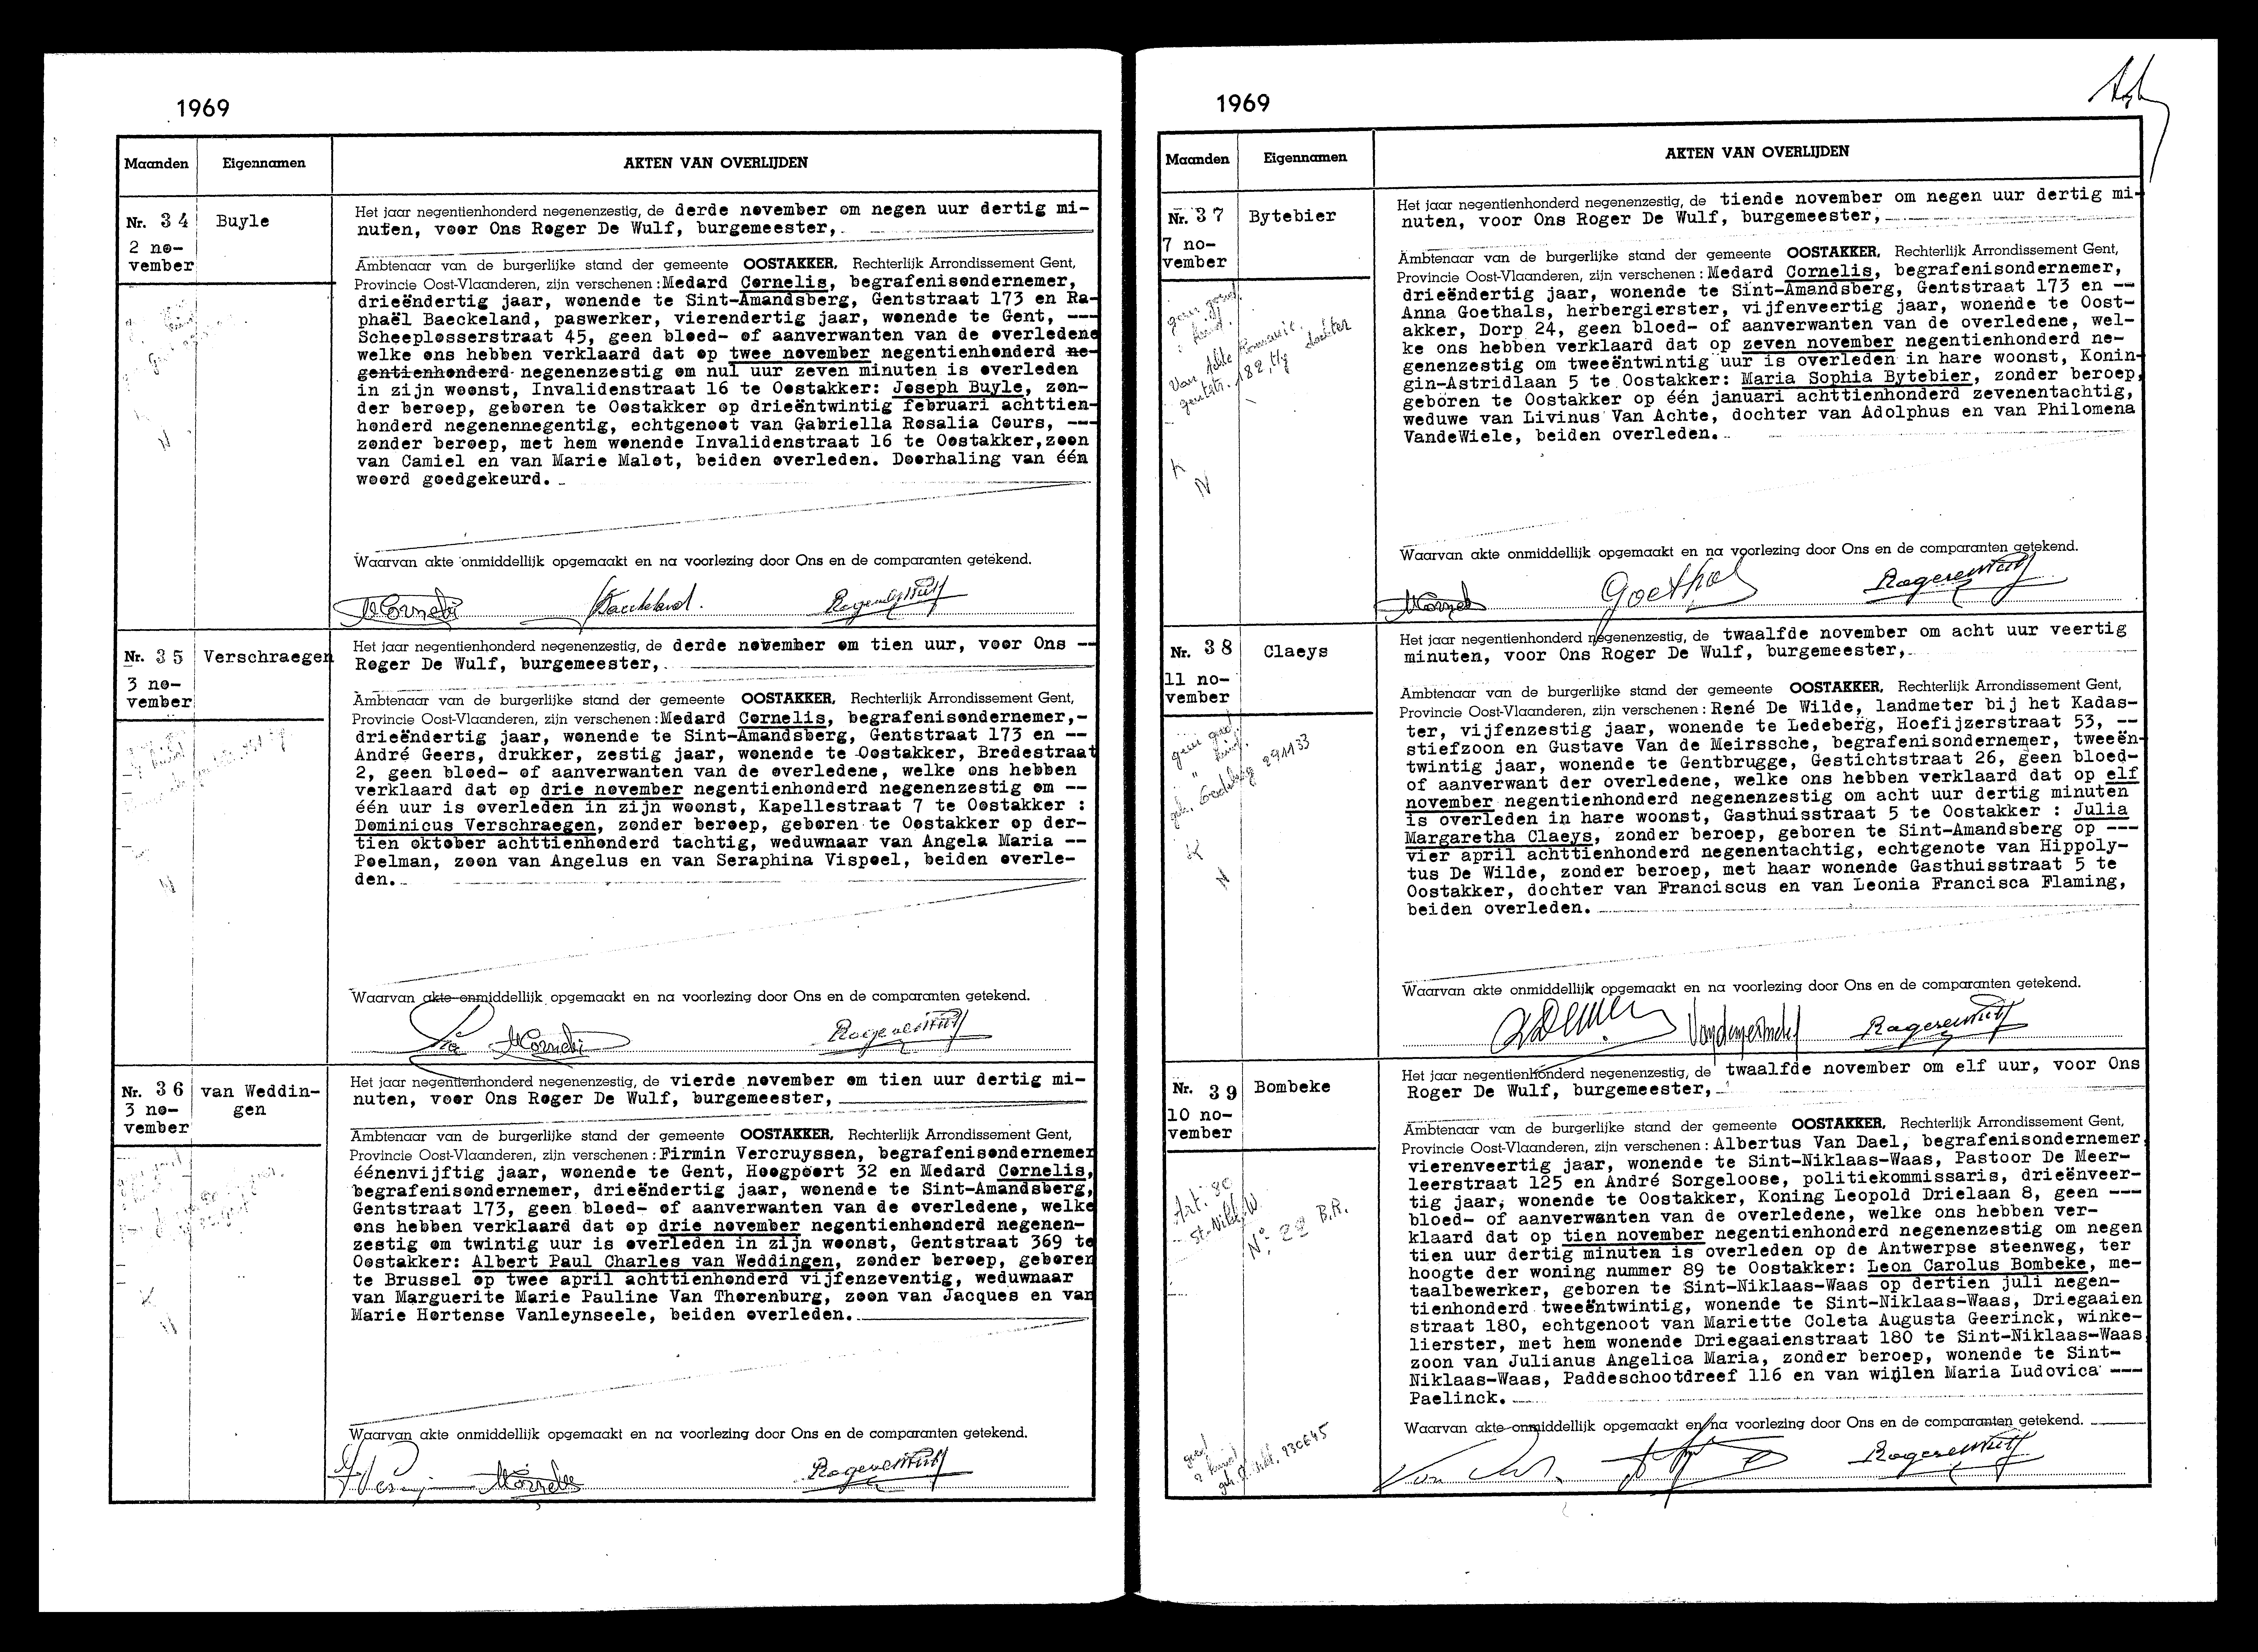 1969
Maanden Eigennamen AKTEN VAN OVERLIJDEN
Nr. 34 Buyle
2 no-
vember
Het jaar negentienhonderd negenenzestig, de derde november om negen uur dertig mi-
nuten, voor Ons Roger De Wulf, burgemeester,
Ambtenaar van de burgerlijke stand der gemeente OOSTAKKER, Rechterlijk Arrondissement Gent,
Provincie Oost-Vlaanderen, zijn verschenen : Medard Cornelis, begrafenisondernemer,
drieëndertig jaar, wonende te Sint-Amandsberg, Gentstraat 173 en Ra-
phaël Baeckeland, paswerker, vierendertig jaar, wonende te Gent, ---
Scheeplosserstraat 45, geen bloed- of aanverwanten van de overledene
welke ons hebben verklaard dat op twee november negentienhonderd ne-
gentienhonderd negenenzestig om nul uur zeven minuten is overleden
in zijn woonst, Invalidenstraat 16 te Oostakker: Joseph Buyle, zon-
der beroep, geboren te Oostakker op drieëntwintig februari achttien-
honderd negenennegentig, echtgenoot van Gabriella Rosalia Cours, ---
zonder beroep, met hem wonende Invalidenstraat 16 te Oostakker, zoon
van Camiel en van Marie Malot, beiden overleden. Doorhaling van één
woord goedgekeurd.
Waarvan akte onmiddellijk opgemaakt en na voorlezing door Ons en de comparanten getekend.
MCornelis Baeckeland. Rogerdewulf
Nr. 35 Verschraegen
3 no-
vember
Het jaar negentienhonderd negenenzestig, de derde november om tien uur, voor Ons --
Roger De Wulf, burgemeester,
Ambtenaar van de burgerlijke stand der gemeente OOSTAKKER, Rechterlijk Arrondissement Gent,
Provincie Oost-Vlaanderen, zijn verschenen : Medard Cornelis, begrafenisondernemer,-
drieëndertig jaar, wonende te Sint-Amandsberg, Gentstraat 173 en --
André Geers, drukker, zestig jaar, wonende te Oostakker, Bredestraat
2, geen bloed- of aanverwanten van de overledene, welke ons hebben
verklaard dat op drie november negentienhonderd negenenzestig om --
één uur is overleden in zijn woonst, Kapellestraat 7 te Oostakker :
Dominicus Verschraegen, zonder beroep, geboren te Oostakker op der-
tien oktober achttienhonderd tachtig, weduwnaar van Angela Maria --
Poelman, zoon van Angelus en van Seraphina Vispoel, beiden overle-
den.
Waarvan akte onmiddellijk opgemaakt en na voorlezing door Ons en de comparanten getekend.
MCornelis Rogerdewulf
Nr. 36 van Weddin-
gen
3 no-
vember
Het jaar negentienhonderd negenenzestig, de vierde november om tien uur dertig mi-
nuten, voor Ons Roger De Wulf, burgemeester,
Ambtenaar van de burgerlijke stand der gemeente OOSTAKKER, Rechterlijk Arrondissement Gent,
Provincie Oost-Vlaanderen, zijn verschenen : Firmin Vercruyssen, begrafenisondernemer
éénenvijftig jaar, wonende te Gent, Hoogpoort 32 en Medard Cornelis,
begrafenisondernemer, drieëndertig jaar, wonende te Sint-Amandsberg,
Gentstraat 173, geen bloed- of aanverwanten van de overledene, welke
ons hebben verklaard dat op drie november negentienhonderd negenen-
zestig om twintig uur is overleden in zijn woonst, Gentstraat 369 te
Oostakker: Albert Paul Charles van Weddingen, zonder beroep, geboren
te Brussel op twee april achttienhonderd vijfenzeventig, weduwnaar
van Marguerite Marie Pauline Van Thorenburg, zoon van Jacques en van
Marie Hortense Vanleynseele, beiden overleden.
Waarvan akte onmiddellijk opgemaakt en na voorlezing door Ons en de comparanten getekend.
Rogerdewulf
1969
Maanden Eigennamen AKTEN VAN OVERLIJDEN
Nr. 37 Bytebier
7 no-
vember
Het jaar negentienhonderd negenenzestig, de tiende november om negen uur dertig mi-
nuten, voor Ons Roger De Wulf, burgemeester,
Ambtenaar van de burgerlijke stand der gemeente OOSTAKKER, Rechterlijk Arrondissement Gent,
Provincie Oost-Vlaanderen, zijn verschenen : Medard Cornelis, begrafenisondernemer,
drieëndertig jaar, wonende te Sint-Amandsberg, Gentstraat 173 en --
Anna Goethals, herbergierster, vijfenveertig jaar, wonende te Oost-
akker, Dorp 24, geen bloed- of aanverwanten van de overledene, wel-
ke ons hebben verklaard dat op zeven november negentienhonderd ne-
genenzestig om tweeëntwintig uur is overleden in hare woonst, Konin-
gin-Astridlaan 5 te Oostakker: Maria Sophia Bytebier, zonder beroep,
geboren te Oostakker op één januari achttienhonderd zevenentachtig,
weduwe van Livinus Van Achte, dochter van Adolphus en van Philomena
VandeWiele, beiden overleden.
K
N
Waarvan akte onmiddellijk opgemaakt en na voorlezing door Ons en de comparanten getekend.
Goethals Rogerdewulf
Nr. 38 Claeys
11 no-
vember
Het jaar negentienhonderd negenenzestig, de twaalfde november om acht uur veertig
minuten, voor Ons Roger De Wulf, burgemeester,
Ambtenaar van de burgerlijke stand der gemeente OOSTAKKER, Rechterlijk Arrondissement Gent,
Provincie Oost-Vlaanderen, zijn verschenen : René De Wilde, landmeter bij het Kadas-
ter, vijfenzestig jaar, wonende te Ledeberg, Hoefijzerstraat 53, --
stiefzoon en Gustave Van de Meirssche, begrafenisondernemer, tweeën-
twintig jaar, wonende te Gentbrugge, Gestichtstraat 26, geen bloed-
of aanverwant der overledene, welke ons hebben verklaard dat op elf
november negentienhonderd negenenzestig om acht uur dertig minuten
is overleden in hare woonst, Gasthuisstraat 5 te Oostakker : Julia
Margaretha Claeys, zonder beroep, geboren te Sint-Amandsberg op ---
vier april achttienhonderd negenentachtig, echtgenote van Hippoly-
tus De Wilde, zonder beroep, met haar wonende Gasthuisstraat 5 te
Oostakker, dochter van Franciscus en van Leonia Francisca Flaming,
beiden overleden.
K
N
Waarvan akte onmiddellijk opgemaakt en na voorlezing door Ons en de comparanten getekend.
Rogerdewulf
Nr. 39 Bombeke
10 no-
vember
Het jaar negentienhonderd negenenzestig, de twaalfde november om elf uur, voor Ons
Roger De Wulf, burgemeester,
Ambtenaar van de burgerlijke stand der gemeente OOSTAKKER, Rechterlijk Arrondissement Gent,
Provincie Oost-Vlaanderen, zijn verschenen : Albertus Van Dael, begrafenisondernemer,
vierenveertig jaar, wonende te Sint-Niklaas-Waas, Pastoor De Meer-
leerstraat 125 en André Sorgeloose, politiekommissaris, drieënveer-
tig jaar, wonende te Oostakker, Koning Leopold Drielaan 8, geen ---
bloed- of aanverwanten van de overledene, welke ons hebben ver-
klaard dat op tien november negentienhonderd negenenzestig om negen
tien uur dertig minuten is overleden op de Antwerpse steenweg, ter
hoogte der woning nummer 89 te Oostakker: Leon Carolus Bombeke, me-
taalbewerker, geboren te Sint-Niklaas-Waas op dertien juli negen-
tienhonderd tweeëntwintig, wonende te Sint-Niklaas-Waas, Driegaaien
straat 180, echtgenoot van Mariette Coleta Augusta Geerinck, winke-
lierster, met hem wonende Driegaaienstraat 180 te Sint-Niklaas-Waas
zoon van Julianus Angelica Maria, zonder beroep, wonende te Sint-
Niklaas-Waas, Paddeschootdreef 116 en van wijlen Maria Ludovica ---
Paelinck.
Art. 80
St. Nikl. W.
N° 29 B.R.
Waarvan akte onmiddellijk opgemaakt en na voorlezing door Ons en de comparanten getekend.
Rogerdewulf